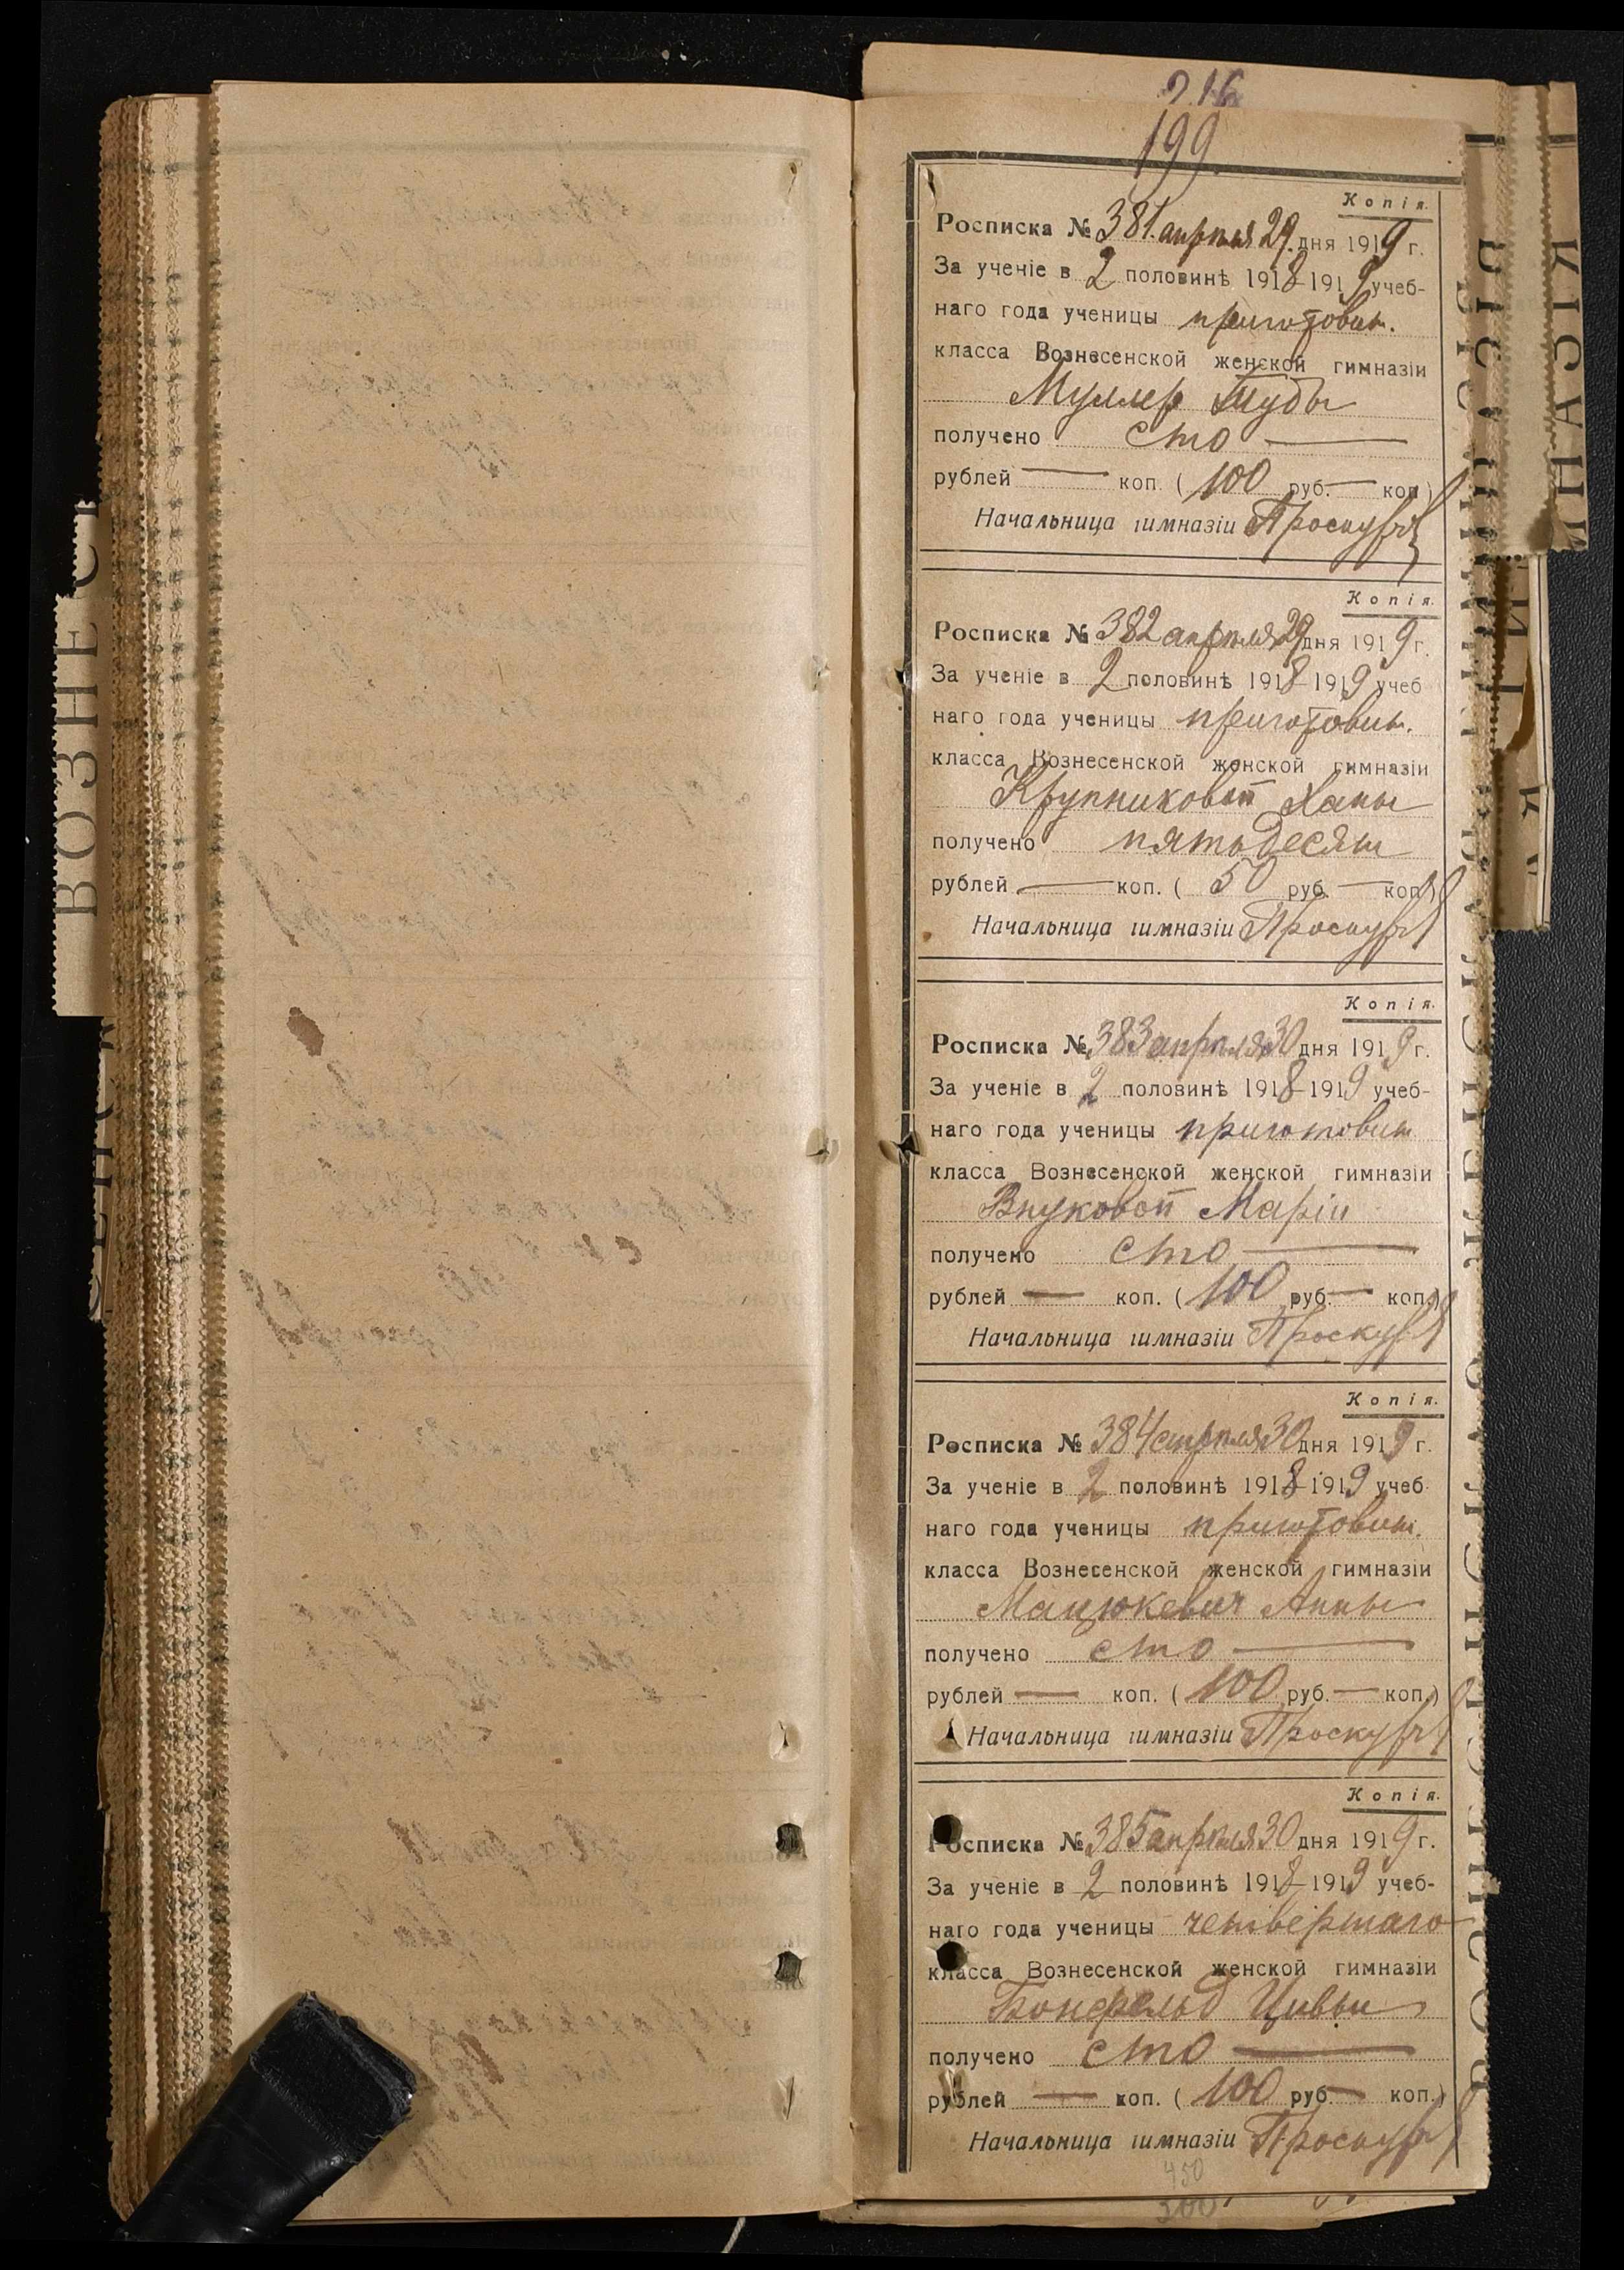 216
199
Копія.
Росписка № 381. апреля 29. дня 1919 г.
За ученіе в 2 половинѣ 1918-1919 учеб-
наго года ученицы приготовит.
класса Вознесенской женской гимназіи
Муллер
получено сто
рублей — коп. (100 руб. — коп.)
Начальница гимназіи
Копія.
Росписка № 382 апреля 29 дня 1919 г.
За ученіе в 2 половинѣ 1918-1919 учеб
наго года ученицы приготовит.
класса Вознесенской женской гимназіи
Крупниковой Ханы
получено пятьдесят
рублей — коп. ( 50 руб. — коп.)
Начальница гимназіи
Копія.
Росписка № 383 апреля 30 дня 1919 г.
За ученіе в 2 половинѣ 1918-1919 учеб-
наго года ученицы приготовит
класса Вознесенской женской гимназіи
Внуковой Маріи
получено сто
рублей — коп. (100 руб. — коп.)
Начальница гимназіи
Копія.
Росписка № 384 апреля 30 дня 1919 г.
За ученіе в 2 половинѣ 1918-1919 учеб
наго года ученицы приготовит.
класса Вознесенской женской гимназіи
Мацюкевич Анны
получено сто
рублей — коп. (100 руб. — коп.)
Начальница гимназіи
Копія.
Росписка № 385 апреля 30 дня 1919 г.
За ученіе в 2 половинѣ 1918-1919 учеб-
наго года ученицы четвертаго
класса Вознесенской женской гимназіи
Бонфельд Цивьи
получено сто
рублей — коп. (100 руб. — коп.)
Начальница гимназіи
450
300
ВОЗНЕС